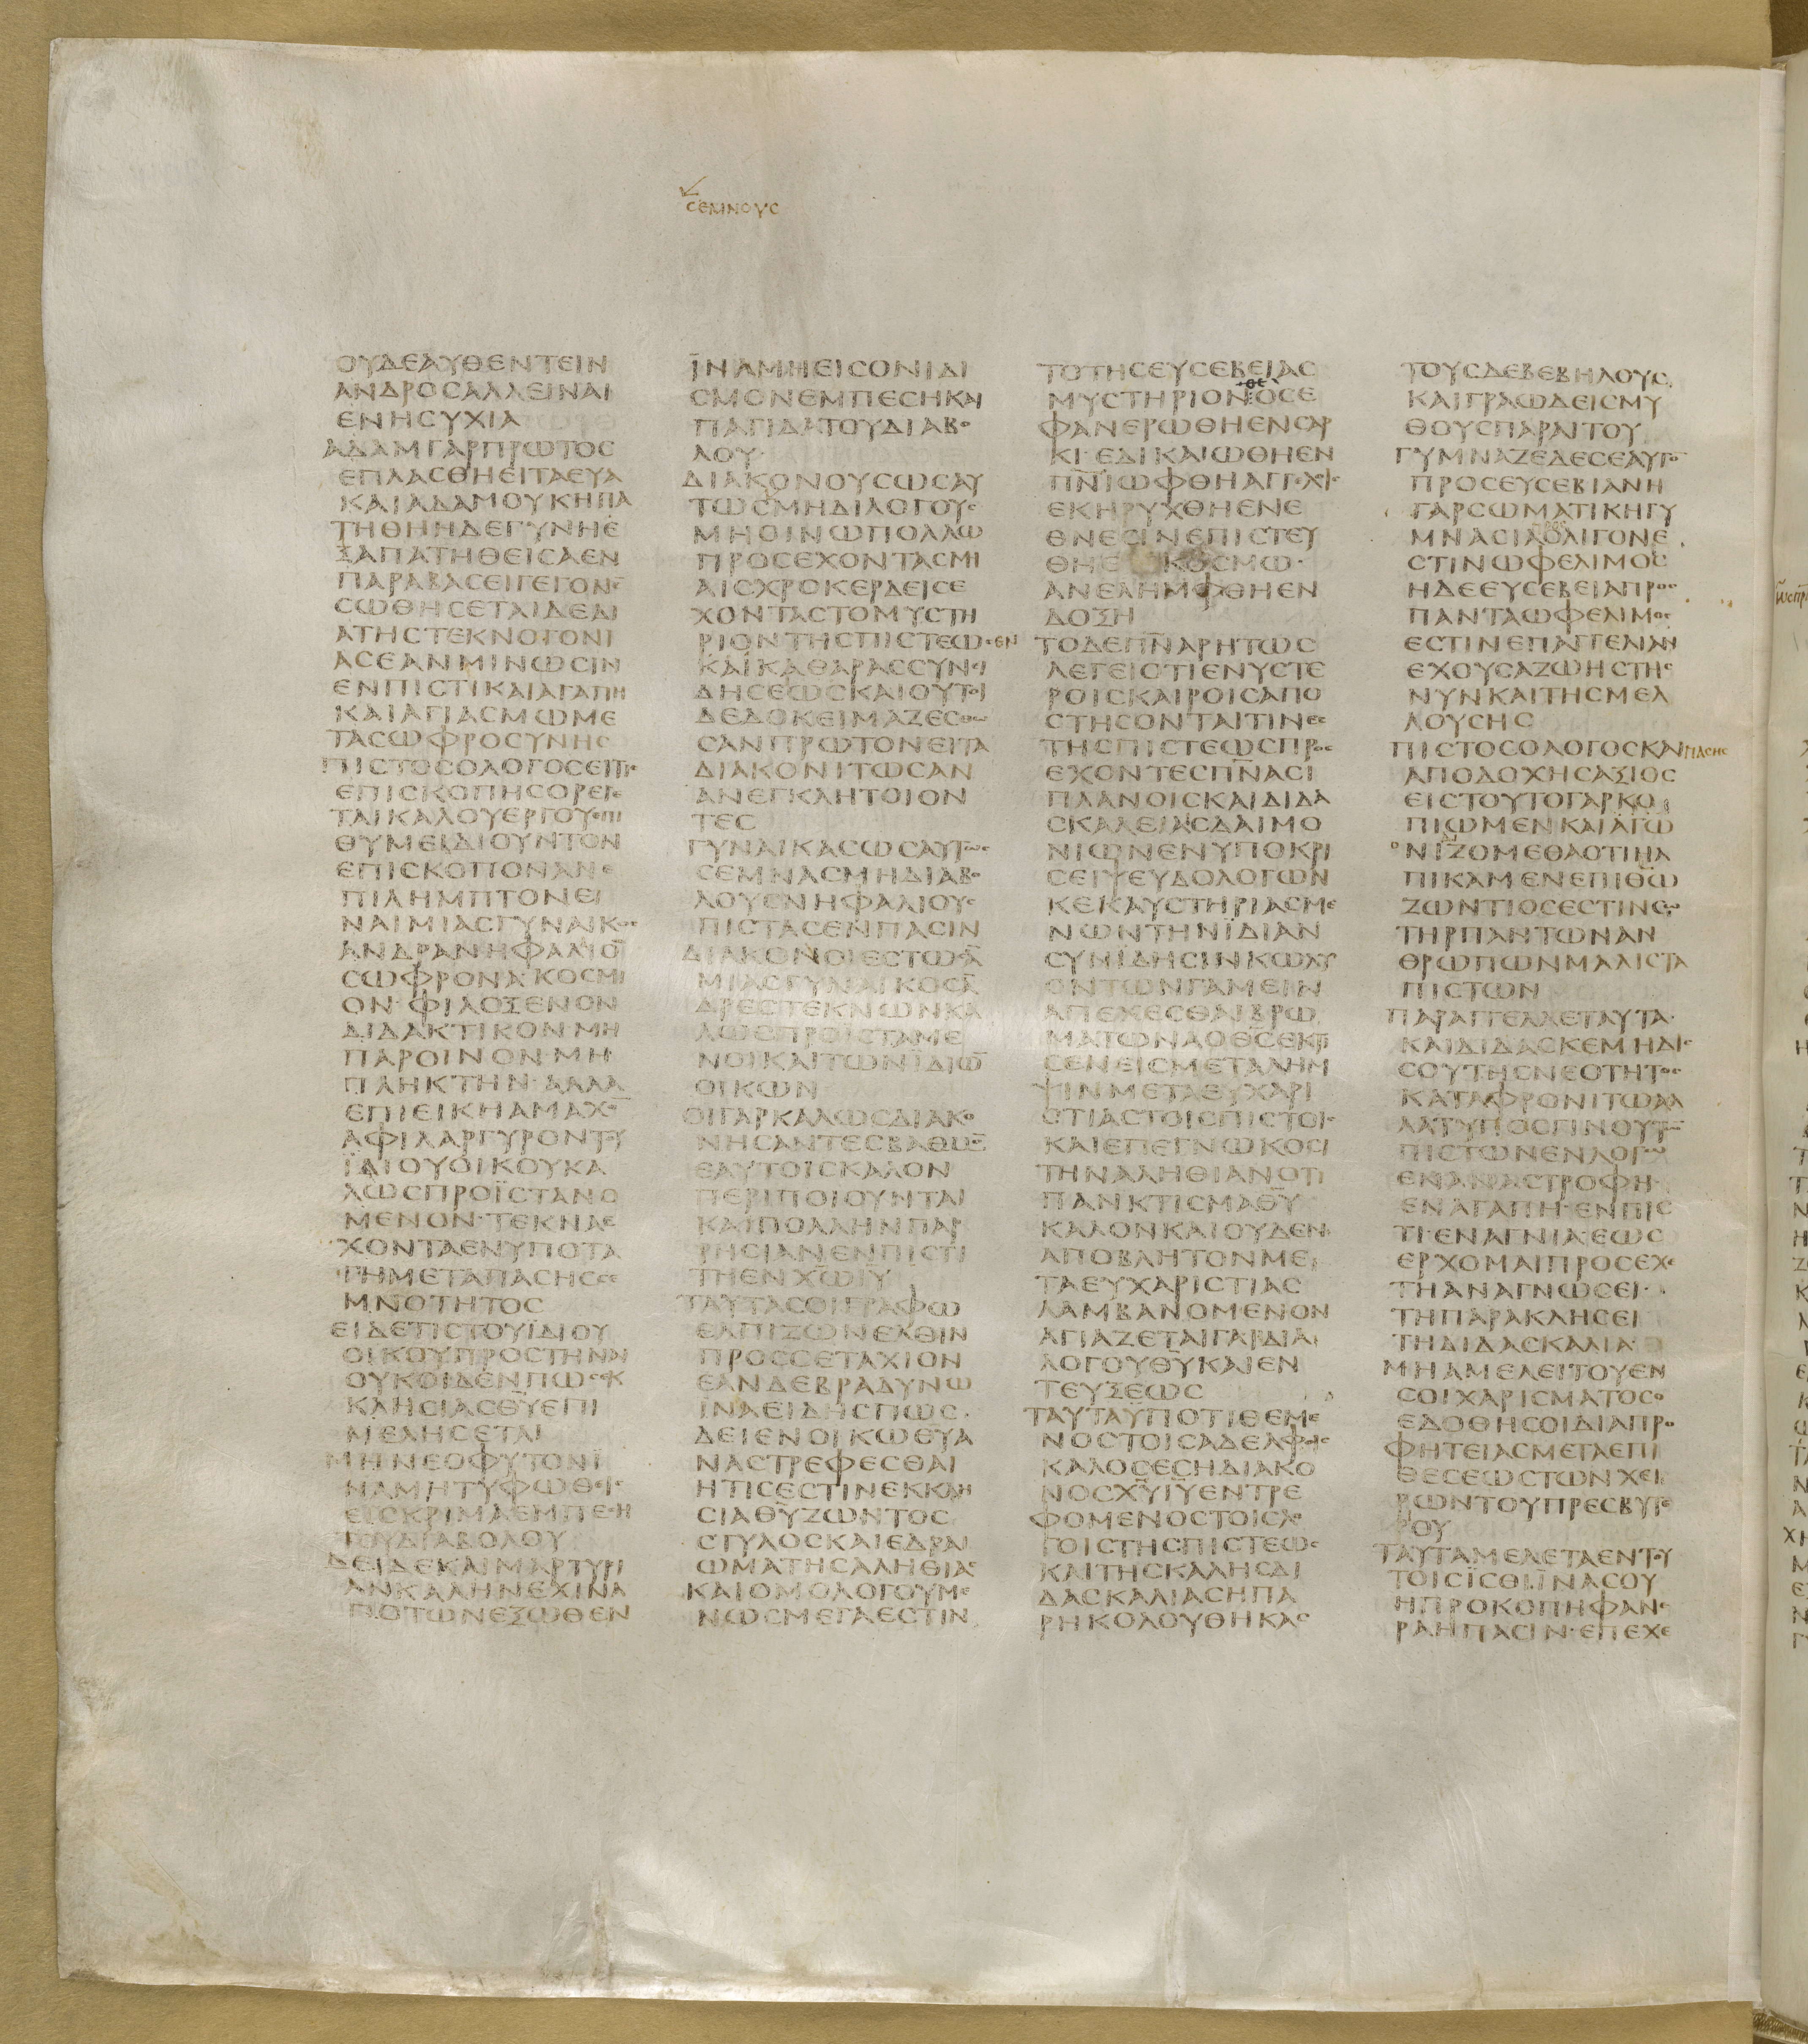 ϹΕΜΝΟΥϹ
ΟΥΔΕΑΥΘΕΝΤΕΙΝ
ΑΝΔΡΟϹΑΛΛΕΙΝΑΙ
ΕΝΗϹΥΧΙΑ
ΑΔΑΜΓΑΡΠΡΩΤΟϹ
ΕΠΛΑϹΘΗΕΙΤΑΕΥΑ
ΚΑΙΑΔΑΜΟΥΚΗΠΑ
ΤΗΘΗΗΔΕΓΥΝΗΕ
ΞΑΠΑΤΗΘΕΙϹΑΕΝ
ΠΑΡΑΒΑϹΕΙΓΕΓΟΝΕ̅
ϹΩΘΗϹΕΤΑΙΔΕΔΙ
ΑΤΗϹΤΕΚΝΟΓΟΝΙ
ΑϹΕΑΝΜΙΝΩϹΙΝ
ΕΝΠΙϹΤΙΚΑΙΑΓΑΠΗ
ΚΑΙΑΓΙΑϹΜΩΜΕ
ΤΑϹΩΦΡΟϹΥΝΗϹ
ΠΙϹΤΟϹΟΛΟΓΟϹΕΙΤΙϹ
ΕΠΙϹΚΟΠΗϹΟΡΕΓΕ
ΤΑΙΚΑΛΟΥΕΡΓΟΥΕΠΙ
ΘΥΜΕΙΔΙΟΥΝΤΟΝ
ΕΠΙϹΚΟΠΟΝΑΝΕ
ΠΙΛΗΜΠΤΟΝΕΙ
ΝΑΙΜΙΑϹΓΥΝΑΙΚΟϹ
ΑΝΔΡΑΝΗΦΑΛΙΟ̅
ϹΩΦΡΟΝΑΚΟϹΜΙ
ΟΝ·ΦΙΛΟΞΕΝΟΝ
ΔΙΔΑΚΤΙΚΟΝ·ΜΗ
ΠΑΡΟΙΝΟΝ·ΜΗ
ΠΛΗΚΤΗΝ·ΑΛΛΑ
ΕΠΙΕΙΚΗΑΜΑΧΟ̅
ΑΦΙΛΑΡΓΥΡΟΝΤΟΥ
ΪΔΙΟΥΟΙΚΟΥΚΑ
ΛΩϹΠΡΟΪϹΤΑΝΟ
ΜΕΝΟΝ·ΤΕΚΝΑΕ
ΧΟΝΤΑΕΝΥΠΟΤΑ
ΓΗΜΕΤΑΠΑϹΗϹϹΕ
ΜΝΟΤΗΤΟϹ
ΕΙΔΕΤΙϹΤΟΥΪΔΙΟΥ
ΟΙΚΟΥΠΡΟϹΤΗΝΑΙ
ΟΥΚΟΙΔΕΝΠΩϹΕΚ
ΚΛΗϹΙΑϹΘ̅Υ̅ΕΠΙ
ΜΕΛΗϹΕΤΑΙ
ΜΗΝΕΟΦΥΤΟΝΪ
ΝΑΜΗΤΥΦΩΘΕΙϹ
ΕΙϹΚΡΙΜΑΕΜΠΕϹΗ
ΤΟΥΔΙΑΒΟΛΟΥ
ΔΕΙΔΕΚΑΙΜΑΡΤΥΡΙ
ΑΝΚΑΛΗΝΕΧΙΝΑ
ΠΟΤΩΝΕΞΩΘΕΝ
ΪΝΑΜΗΕΙϹΟΝΙΔΙ
ϹΜΟΝΕΜΠΕϹΗΚΑΙ
ΠΑΓΙΔΑΤΟΥΔΙΑΒΟ
ΛΟΥ·
ΔΙΑΚΟΝΟΥϹΩϹΑΥ
ΤΩϹΜΗΔΙΛΟΓΟΥϹ
ΜΗΟΙΝΩΠΟΛΛΩ
ΠΡΟϹΕΧΟΝΤΑϹΜΗ
ΑΙϹΧΡΟΚΕΡΔΕΙϹΕ
ΧΟΝΤΑϹΤΟΜΥϹΤΗ
ΡΙΟΝΤΗϹΠΙϹΤΕΩϹΕΝ
ΚΑΙΚΑΘΑΡΑϹϹΥΝΕΙ
ΔΗϹΕΩϹΚΑΙΟΥΤΟΙ
ΔΕΔΟΚΕΙΜΑΖΕϹΘΩ
ϹΑΝΠΡΩΤΟΝΕΙΤΑ
ΔΙΑΚΟΝΙΤΩϹΑΝ
ΑΝΕΓΚΛΗΤΟΙΟΝ
ΤΕϹ
ΓΥΝΑΙΚΑϹΩϹΑΥΤΩϹ
ϹΕΜΝΑϹΜΗΔΙΑΒΟ
ΛΟΥϹΝΗΦΑΛΙΟΥϹ
ΠΙϹΤΑϹΕΝΠΑϹΙΝ
ΔΙΑΚΟΝΟΙΕϹΤΩϹΑ̅
ΜΙΑϹΓΥΝΑΙΚΟϹΑ̅
ΔΡΕϹΤΕΚΝΩΝΚΑ
ΛΩϹΠΡΟΙϹΤΑΜΕ
ΝΟΙΚΑΙΤΩΝΪΔΙΩ̅
ΟΙΚΩΝ
ΟΙΓΑΡΚΑΛΩϹΔΙΑΚΟ
ΝΗϹΑΝΤΕϹΒΑΘΜΟ̅
ΕΑΥΤΟΙϹΚΑΛΟΝ
ΠΕΡΙΠΟΙΟΥΝΤΑΙ
ΚΑΙΠΟΛΛΗΝΠΑΡ
ΡΗϹΙΑΝΕΝΠΙϹΤΙ
ΤΗΕΝΧ̅Ω̅Ι̅Υ̅
ΤΑΥΤΑϹΟΙΓΡΑΦΩ
ΕΛΠΙΖΩΝΕΛΘΙΝ
ΠΡΟϹϹΕΤΑΧΙΟΝ
ΕΑΝΔΕΒΡΑΔΥΝΩ
ΪΝΑΕΙΔΗϹΠΩϹ
ΔΕΙΕΝΟΙΚΩΘΥΑ
ΝΑϹΤΡΕΦΕϹΘΑΙ
ΗΤΙϹΕϹΤΙΝΕΚΚΛΗ
ϹΙΑΘ̅Υ̅ΖΩΝΤΟϹ
ϹΤΥΛΟϹΚΑΙΕΔΡΑΙ
ΩΜΑΤΗϹΑΛΗΘΙΑϹ
ΚΑΙΟΜΟΛΟΓΟΥΜΕ
ΝΩϹΜΕΓΑΕϹΤΙΝ
ΤΟΤΗϹΕΥϹΕΒΕΙΑϹ
ΘΕ
ΜΥϹΤΗΡΙΟΝΟϹΕ
ΦΑΝΕΡΩΘΗΕΝϹΑΡ
ΚΙ·ΕΔΙΚΑΙΩΘΗΕΝ
Π̅Ν̅ΙΩΦΘΗΑΓΓΕΛΟΙϹ
ΕΚΗΡΥΧΘΗΕΝΕ
ΘΝΕϹΙΝΕΠΙϹΤΕΥ
ΘΗΕΝΚΟϹΜΩ·
ΑΝΕΛΗΜΦΘΗΕΝ
ΔΟΞΗ
ΤΟΔΕΠ̅Ν̅ΑΡΗΤΩϹ
ΛΕΓΕΙΟΤΙΕΝΥϹΤΕ
ΡΟΙϹΚΑΙΡΟΙϹΑΠΟ
ϹΤΗϹΟΝΤΑΙΤΙΝΕϹ
ΤΗϹΠΙϹΤΕΩϹΠΡΟϹ
ΕΧΟΝΤΕϹΠ̅Ν̅ΑϹΙ
ΠΛΑΝΟΙϹΚΑΙΔΙΔΑ
ϹΚΑΛΕΙΑΙϹΔΑΙΜΟ
ΝΙΩΝΕΝΥΠΟΚΡΙ
ϹΕΙΨΕΥΔΟΛΟΓΩΝ
ΚΕΚΑΥϹΤΗΡΙΑϹΜΕ
ΝΩΝΤΗΝΪΔΙΑΝ
ϹΥΝΙΔΗϹΙΝΚΩΛΥ
ΟΝΤΩΝΓΑΜΕΙΝ
ΑΠΕΧΕϹΘΑΙΒΡΩ
ΜΑΤΩΝΑΟΘ̅Ϲ̅ΕΚΤΙ
ϹΕΝΕΙϹΜΕΤΑΛΗΜ
ΨΙΝΜΕΤΑΕΥΧΑΡΙ
ϹΤΙΑϹΤΟΙϹΠΙϹΤΟΙϹ
ΚΑΙΕΠΕΓΝΩΚΟϹΙ
ΤΗΝΑΛΗΘΙΑΝΟΤΙ
ΠΑΝΚΤΙϹΜΑΘ̅Υ̅
ΚΑΛΟΝΚΑΙΟΥΔΕΝ
ΑΠΟΒΛΗΤΟΝΜΕ
ΤΑΕΥΧΑΡΙϹΤΙΑϹ
ΛΑΜΒΑΝΟΜΕΝΟΝ
ΑΓΙΑΖΕΤΑΙΓΑΡΔΙΑ
ΛΟΓΟΥΘ̅Υ̅ΚΑΙΕΝ
ΤΕΥΞΕΩϹ
ΤΑΥΤΑΫΠΟΤΙΘΕΜΕ
ΝΟϹΤΟΙϹΑΔΕΛΦΟΙϹ
ΚΑΛΟϹΕϹΗΔΙΑΚΟ
ΝΟϹΧ̅Υ̅Ι̅Υ̅ΕΝΤΡΕ
ΦΟΜΕΝΟϹΤΟΙϹΛΟ
ΓΟΙϹΤΗϹΠΙϹΤΕΩϹ
ΚΑΙΤΗϹΚΑΛΗϹΔΙ
ΔΑϹΚΑΛΙΑϹΗΠΑ
ΡΗΚΟΛΟΥΘΗΚΑϹ
ΤΟΥϹΔΕΒΕΒΗΛΟΥϹ
ΚΑΙΓΡΑΩΔΕΙϹΜΥ
ΘΟΥϹΠΑΡΑΙΤΟΥ
ΓΥΜΝΑΖΕΔΕϹΕΑΥΤΟ̅
ΠΡΟϹΕΥϹΕΒΙΑΝΗ
ΓΑΡϹΩΜΑΤΙΚΗΓΥ
ΠΡΟϹ
ΜΝΑϹΙΑΟΛΙΓΟΝΕ
ϹΤΙΝΩΦΕΛΙΜΟϹ
ΗΔΕΕΥϹΕΒΕΙΑΠΡΟϹ
ΠΑΝΤΑΩΦΕΛΙΜΟϹ
ΕϹΤΙΝΕΠΑΓΓΕΛΙΑΝ
ΕΧΟΥϹΑΖΩΗϹΤΗϹ
ΝΥΝΚΑΙΤΗϹΜΕΛ
ΛΟΥϹΗϹ
ΠΙϹΤΟϹΟΛΟΓΟϹΚΑΙΠΑϹΗϹ
ΑΠΟΔΟΧΗϹΑΞΙΟϹ
ΕΙϹΤΟΥΤΟΓΑΡΚΟ
ΠΙΩΜΕΝΚΑΙΑΓΩ
ΝΙΖΟΜΕΘΑΟΤΙΗΛ
ΠΙΚΑΜΕΝΕΠΙΘ̅Ω̅
ΖΩΝΤΙΟϹΕϹΤΙΝϹΩ
ΤΗΡΠΑΝΤΩΝΑΝ
ΘΡΩΠΩΝΜΑΛΙϹΤΑ
ΠΙϹΤΩΝ
ΠΑΡΑΓΓΕΛΛΕΤΑΥΤΑ·
ΚΑΙΔΙΔΑϹΚΕΜΗΔΙϹ
ϹΟΥΤΗϹΝΕΟΤΗΤΟϹ
ΚΑΤΑΦΡΟΝΙΤΩΑΛ
ΛΑΤΥΠΟϹΓΙΝΟΥΤΩ̅
ΠΙϹΤΩΝΕΝΛΟΓΩ
ΕΝΑΝΑϹΤΡΟΦΗ
ΕΝΑΓΑΠΗ·ΕΝΠΙϹ
ΤΙ·ΕΝΑΓΝΙΑΕΩϹ
ΕΡΧΟΜΑΙΠΡΟϹΕΧΕ
ΤΗΑΝΑΓΝΩϹΕΙ·
ΤΗΠΑΡΑΚΛΗϹΕΙ
ΤΗΔΙΔΑϹΚΑΛΙΑ
ΜΗΑΜΕΛΕΙΤΟΥΕΝ
ϹΟΙΧΑΡΙϹΜΑΤΟϹΟ
ΕΔΟΘΗϹΟΙΔΙΑΠΡΟ
ΦΗΤΕΙΑϹΜΕΤΑΕΠΙ
ΘΕϹΕΩϹΤΩΝΧΕΙ
ΡΩΝΤΟΥΠΡΕϹΒΥΤΕ
ΡΟΥ
ΤΑΥΤΑΜΕΛΕΤΑΕΝΤΟΥ
ΤΟΙϹΪϹΘΙΪΝΑϹΟΥ
ΗΠΡΟΚΟΠΗΦΑΝΕ
ΡΑΗΠΑϹΙΝ·ΕΠΕΧΕ